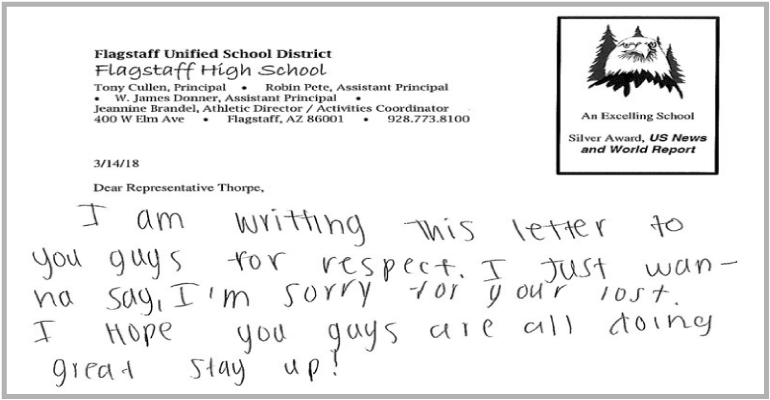 Flagstaff Unified School District
Flagstaff High School
Tony Cullen, Principal • Robin Pete, Assistant Principal
• W. James Donner, Assistant Principal •
Jeannine Brandel, Athletic Director / Activities Coordinator
400 W Elm Ave • Flagstaff, AZ 86001 • 928.773.8100
An Excelling School
Silver Award, US News
and World Report
3/14/18
Dear Representative Thorpe,
I am writting this letter to
you guys for respect. I just wan-
na say, I'm sorry for your lost.
I Hope you guys are all doing
great stay up!